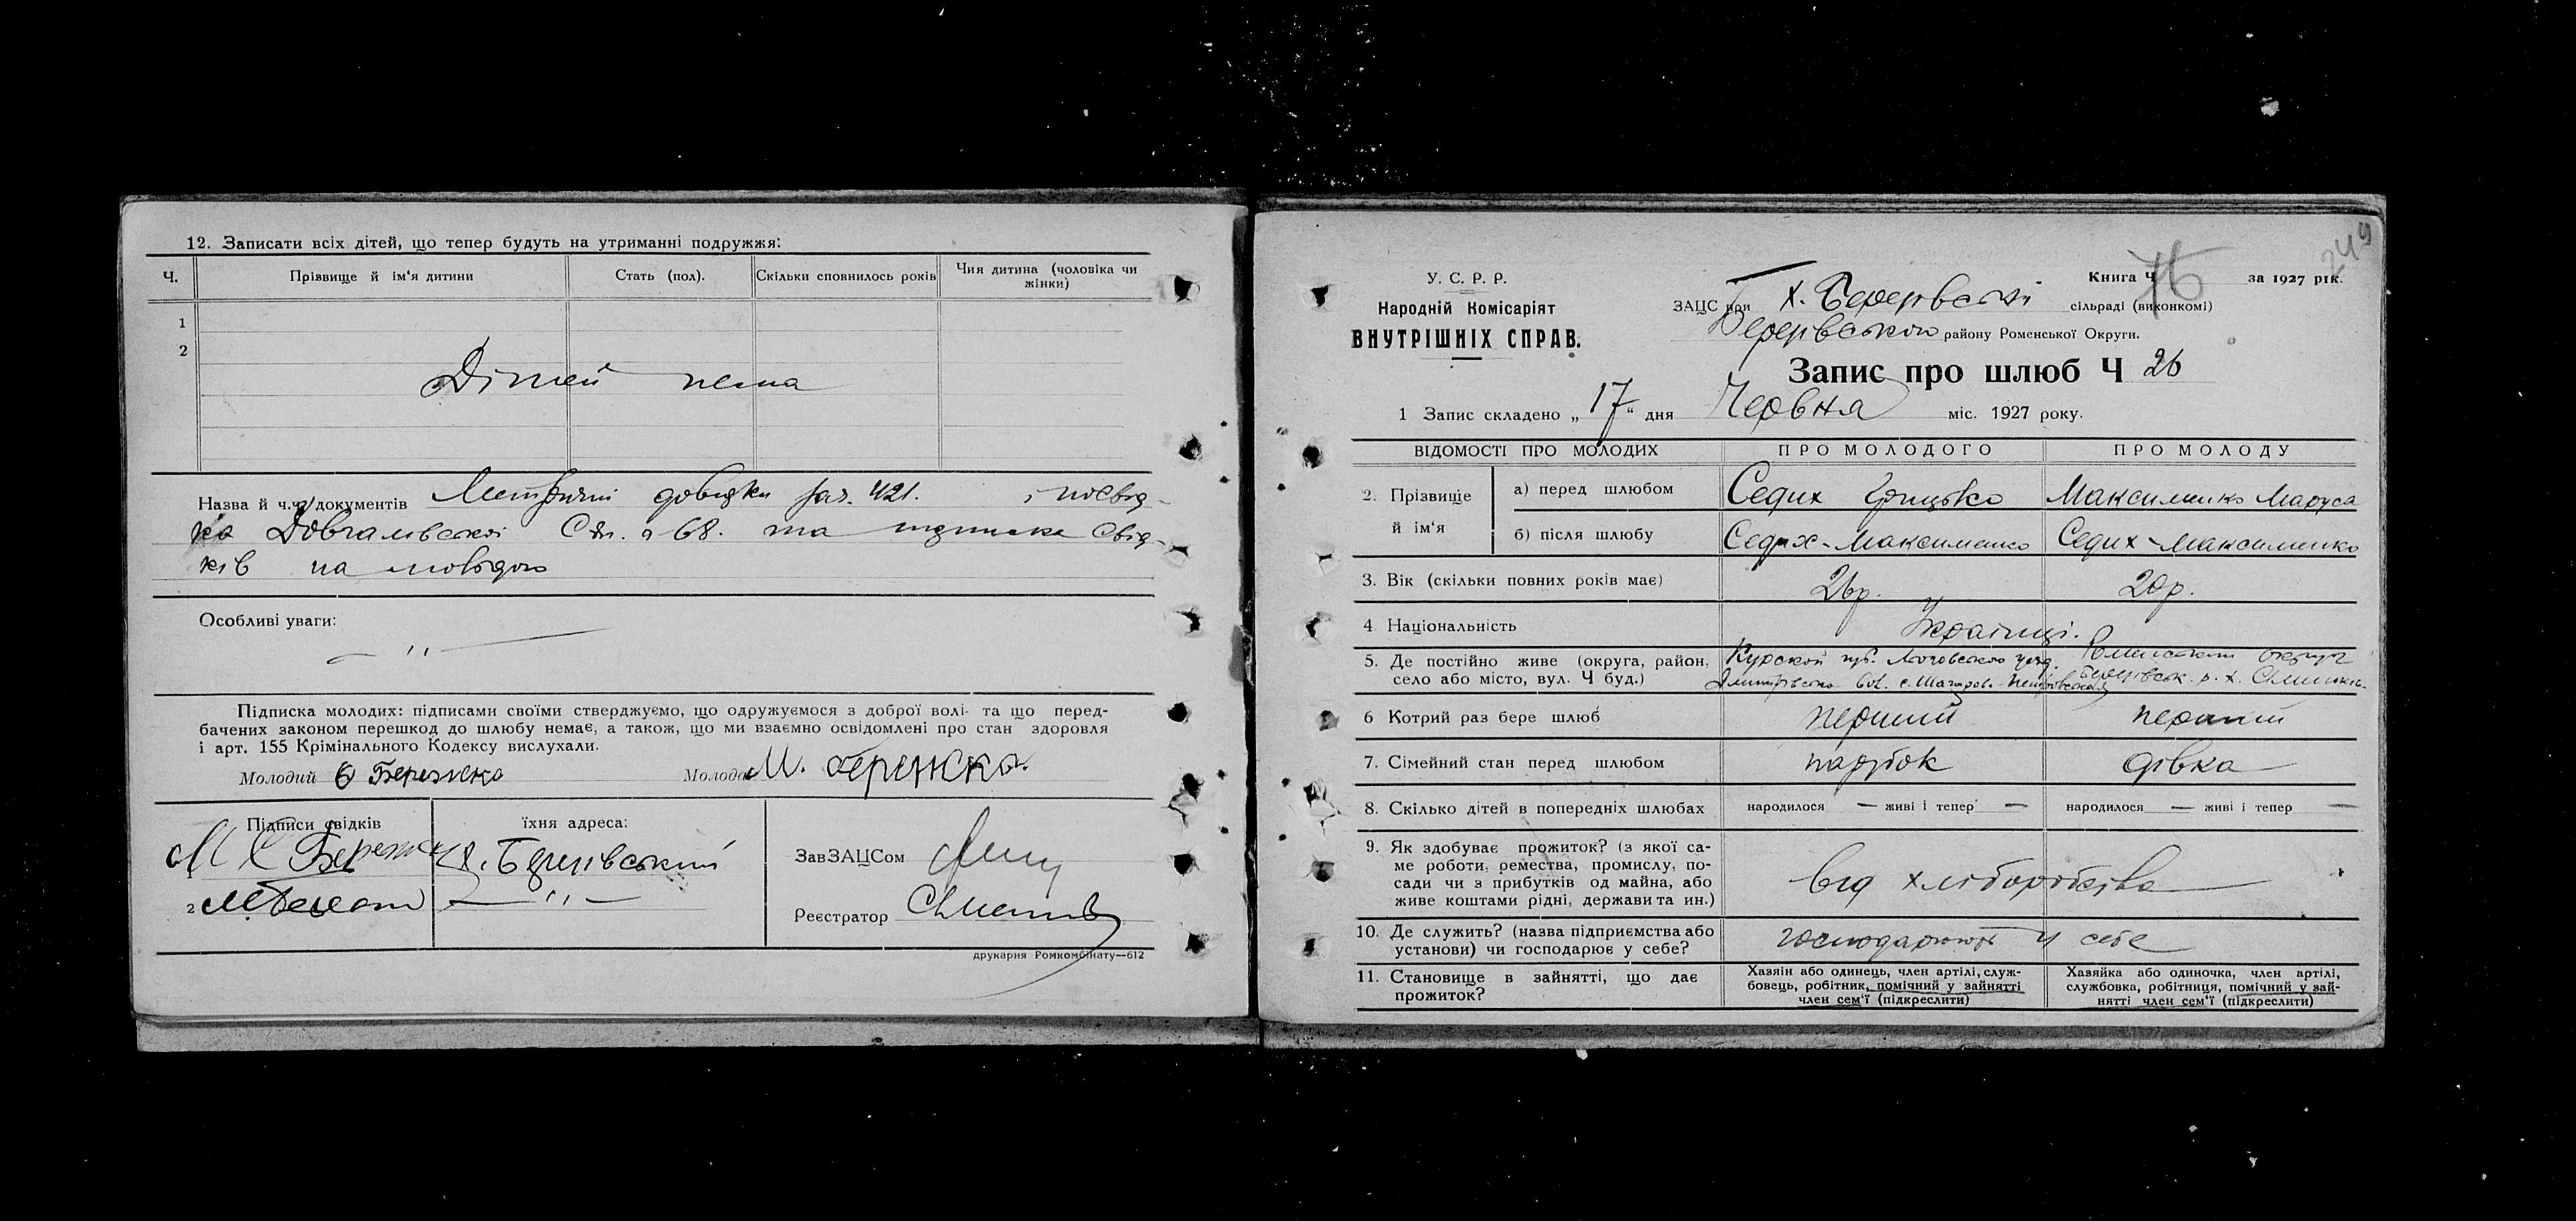 12. Записати всіх дітей, що тепер будуть на утриманні подружжя:
Ч. Прізвище й ім'я дитини Стать (пол). Скільки сповнилось років Чия дитина (чоловіка чи жінки)
1
2
Дітей нема
Назва й ч.ч. документів Метричні довідки 421. і посвід-
ка 68. та свід-
ків на
Особливі уваги:
— " —
Підписка молодих: підписами своїми стверджуємо, що одружуємося з доброї волі та що перед-
бачених законом перешкод до шлюбу немає, а також, що ми взаємно освідомлені про стан здоровля
і арт. 155 Крімінального Кодексу вислухали.
Молодий Бережка Молода М.
Підписи свідків їхня адреса:
М
х.
ЗавЗАЦСом
2 — " —
Реєстратор
друкарня Ромкомбінату—612
249
У. С. Р. Р.
Народній Комісаріят
ВНУТРІШНІХ СПРАВ.
Книга Ч 76 за 1927 рік.
ЗАЦС при х. сільраді (виконкомі)
району Роменської Округи.
Запис про шлюб Ч 26
1 Запис складено „17" дня Червня міс. 1927 року.
ВІДОМОСТІ ПРО МОЛОДИХ ПРО МОЛОДОГО ПРО МОЛОДУ
2. Прізвище й ім'я
а) перед шлюбом Седих Грицько Максименко Маруся
б) після шлюбу Седих-Максименко Седих-Максименко
3. Вік (скільки повних років має) 26р. 20р.
4 Національність Українці.
5. Де постійно живе (округа, район, Курской губ. Роменської округи
село або місто, вул. Ч буд.) р. х.
6 Котрий раз бере шлюб перший перший
7. Сімейний стан перед шлюбом парубок дівка
8. Скілько дітей в попередніх шлюбах народилося — живі і тепер — народилося — живі і тепер —
9. Як здобуває прожиток? (з якої са-
ме роботи, ремества, промислу, по-
сади чи з прибутків од майна, або
живе коштами рідні, держави та ин.)
від хліборобства
10. Де служить? (назва підприємства або
установи) чи господарює у себе?
господарюють у себе
11. Становище в зайнятті, що дає
прожиток?
Хазяін або одинець, член артілі, служ-
бовець, робітник, помічний у зайнятті
член сем'ї (підкреслити)
Хазяйка або одиночка, член артілі,
службовка, робітниця, помічний у зай-
нятті член сем'ї (підкреслити)